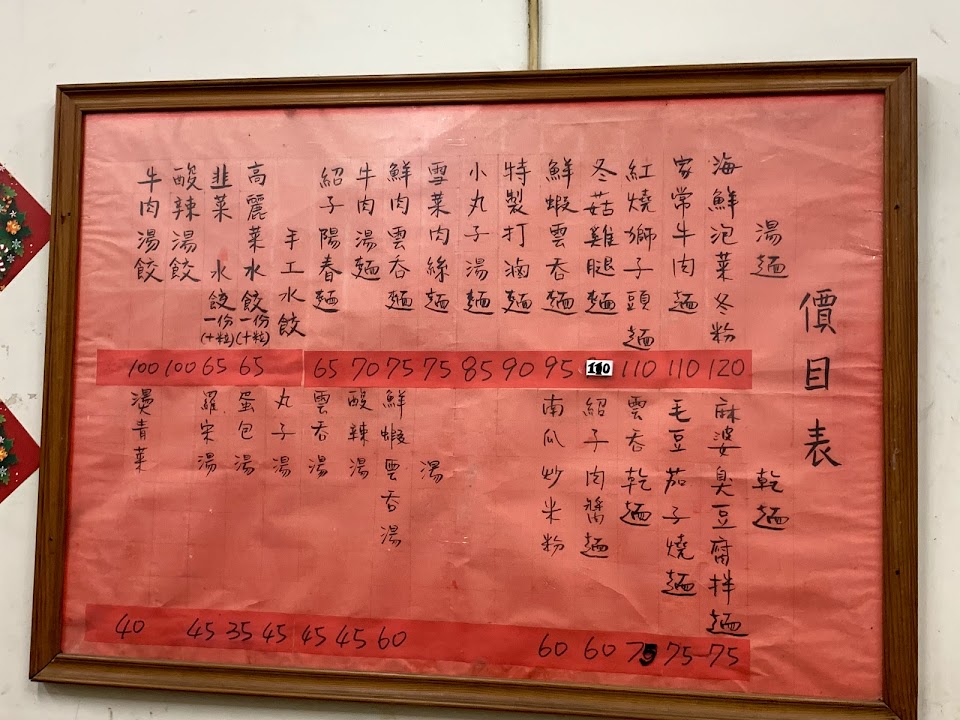 價目表
湯麵
海鮮泡菜冬粉 120
家常牛肉麵 110
紅燒獅子頭麵 110
冬菇雞腿麵 110
鮮蝦雲吞麵 95
特製打滷麵 90
小丸子湯麵 85
雪菜肉絲麵 75
鮮肉雲吞麵 75
牛肉湯麵 70
紹子陽春麵 65
手工水餃
高麗菜水餃一份(十粒) 65
韭菜水餃一份(十粒) 65
酸辣湯餃 100
牛肉湯餃 100
乾麵
麻婆臭豆腐拌麵 75
毛豆茄子燒麵 75
雲吞乾麵 75
紹子肉醬麵 60
南瓜炒米粉 60
湯
鮮蝦雲吞湯 60
酸辣湯 45
雲吞湯 45
丸子湯 45
蛋包湯 35
羅宋湯 45
燙青菜 40